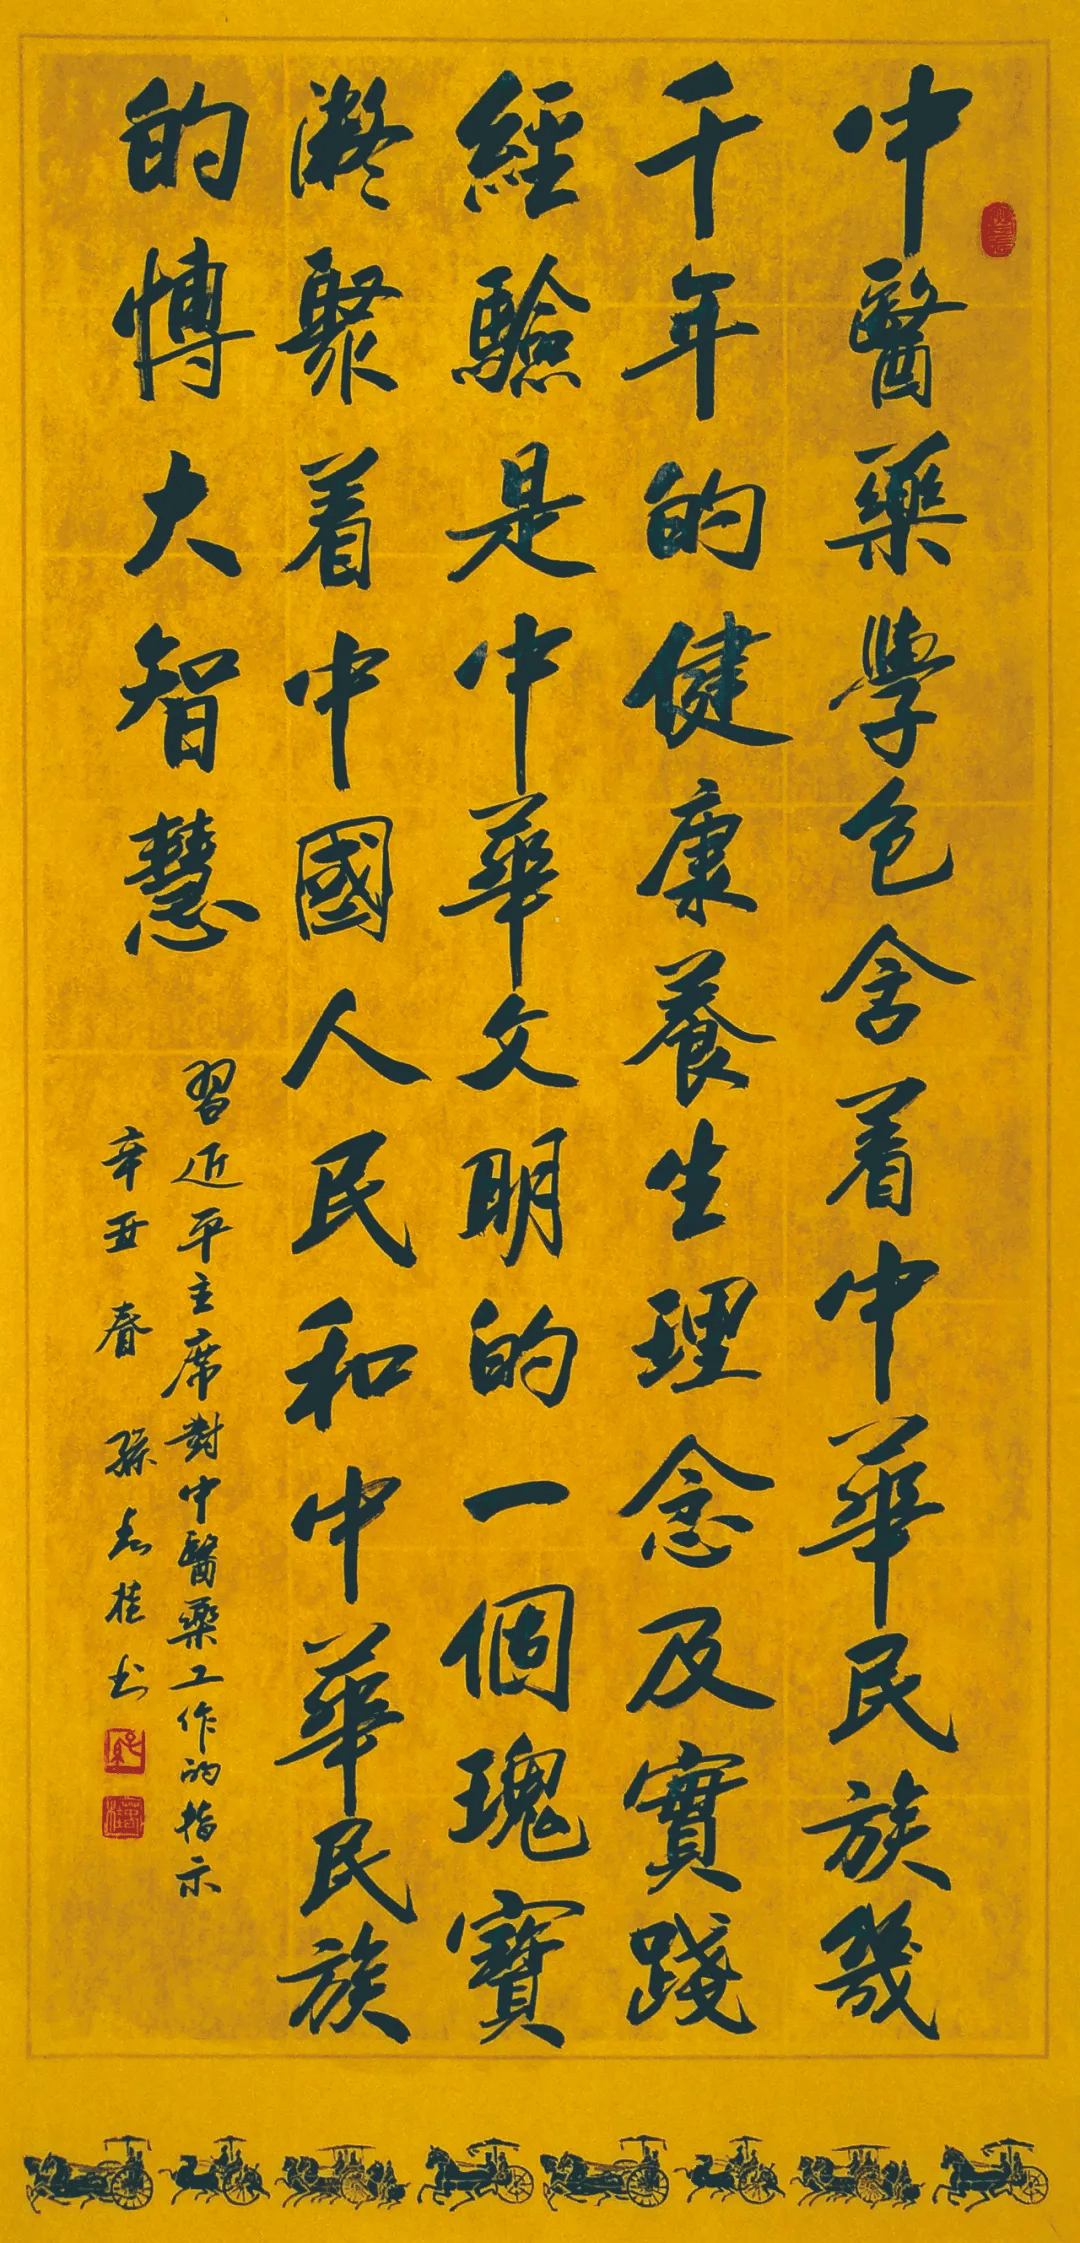 中醫藥學包含着中華民族幾
千年的健康養生理念及實踐
經驗是中華文明的一個瑰寶
凝聚着中國人民和中華民族
的博大智慧
習近平主席對中醫藥工作的指示
辛丑春 孫桂书